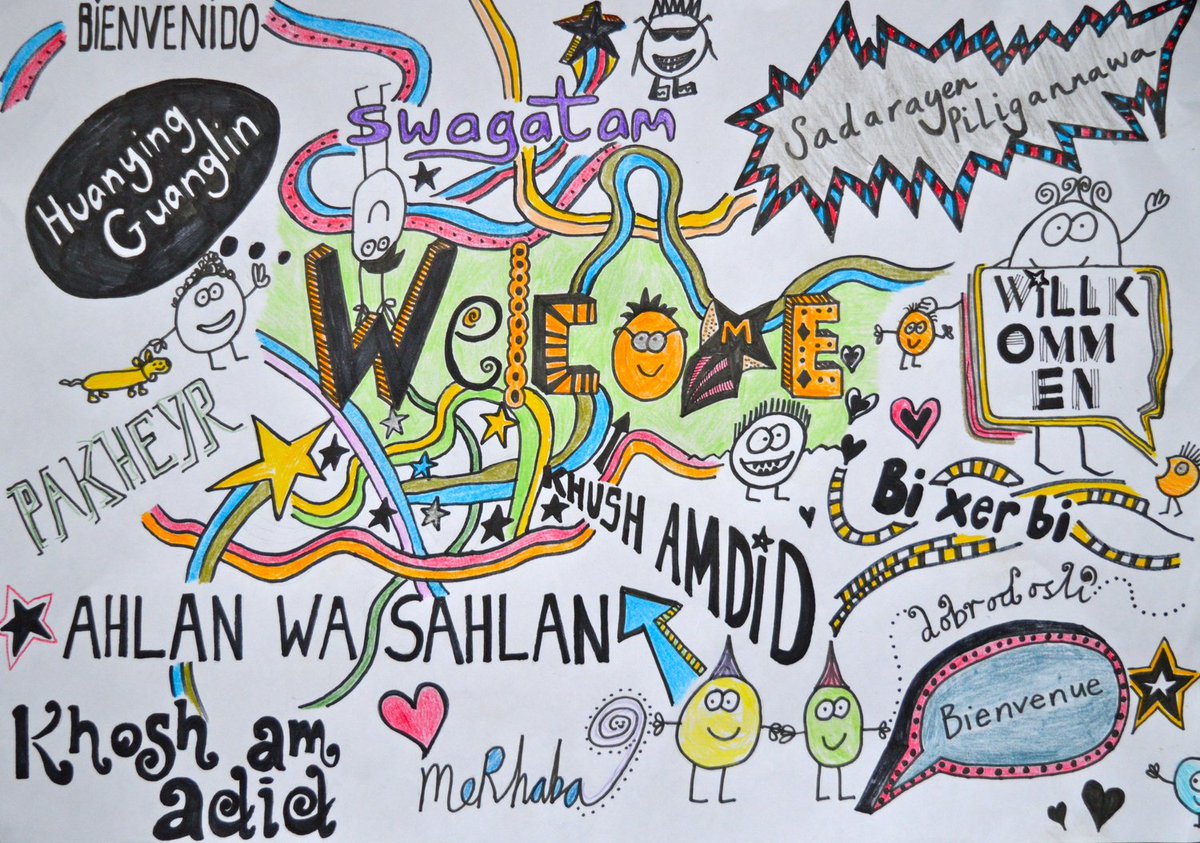 BIENVENIDO
Huanying
Guanglin
swagatam
Sadarayen
Piligannawa
WelCOME
WiLLK
OMM
EN
PAKHEYR
KHUSH AMDiD
Bi xer bi
AHLAN WA SAHLAN
dobrodosli
Khosh am
adid
MeRhaba
Bienvenue